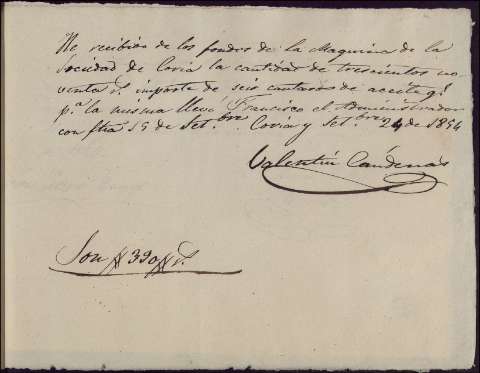 He recibido de los fondos de la Maquina de la
Sociedad de Coria la cantidad de trescientos no-
venta r.s importe de seis cantaros de aceite q.e
p.a la misma llevó Francisco el Administrador
con fha 15 de Set.bre Coria y Set.bre 24 de 1854
Valentin Cárdenas
Son # 390 # r.s